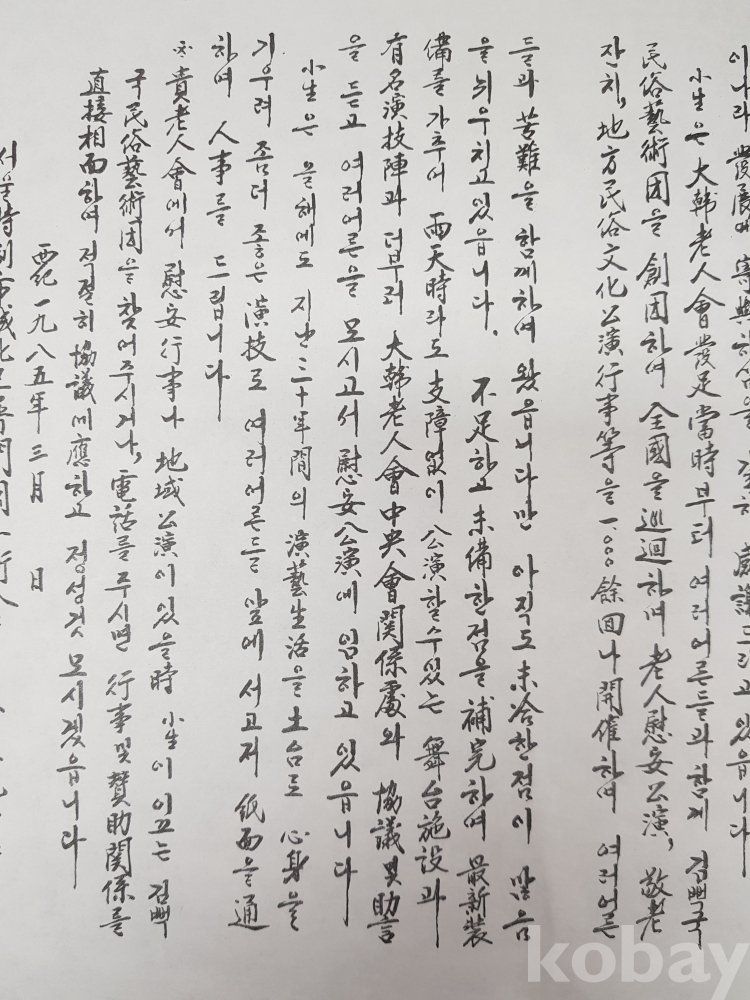 이나라 發展에 寄與하심을 감히 感謝드리고 있읍니다
小生은 大韓老人會發足當時부터 여러어른들과함께 김뻑국
民俗藝術団을 創団하여 全國을 巡迴하며 老人慰安公演, 敬老
잔치, 地方民俗文化公演行事等을 一,○○○餘回나 開催하며 여러어른
들과 苦難을 함께하여 왔읍니다만 아직도 未洽한점이 많음
을 뇌우치고있읍니다. 不足하고 未備한점을 補完하여 最新裝
備를 가추어 雨天時라도 支障없이 公演할수있는 舞台施設과
有名演技陣과 더부러 大韓老人會中央會関係處와 協議및助言
을 듣고 여러어른을 모시고서 慰安公演에 임하고 있읍니다
小生은 올해에도 지난三十年間의 演藝生活을土台로 心身을
기우려 좀더 좋은 演技로 여러어른들 앞에 서고저 紙面을通
하여 人事를 드립니다
※貴老人會에서 慰安行事나 地域公演이있을時 小生이 이끄는 김뻑
국民俗藝術団을 찾어주시거나, 電話를 주시면 行事및賛助関係를
直接相面하여 적절히 協議에應하고 정성껏 모시겠읍니다
西紀 一九八五年 三月 日
서울